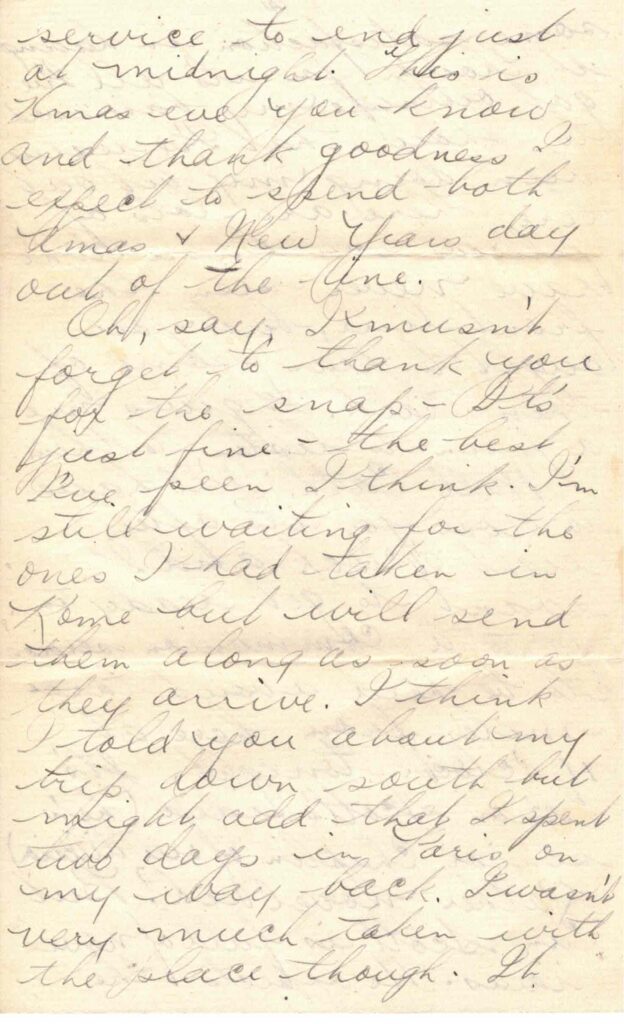 service to end just
at midnight. This is
Xmas eve you know
and thank goodness I
expect to spend both
Xmas & New Years day
out of the line.
Oh, say, I musn't
forget to thank you
for the snap - It's
just fine - the best
I've seen I think. I'm
still waiting for the
ones I had taken in
Rome but will send
them along as soon as
they arrive. I think
I told you about my
trip down south but
might add that I spent
two days in Paris on
my way back. I wasn't
very much taken with
the place though. It